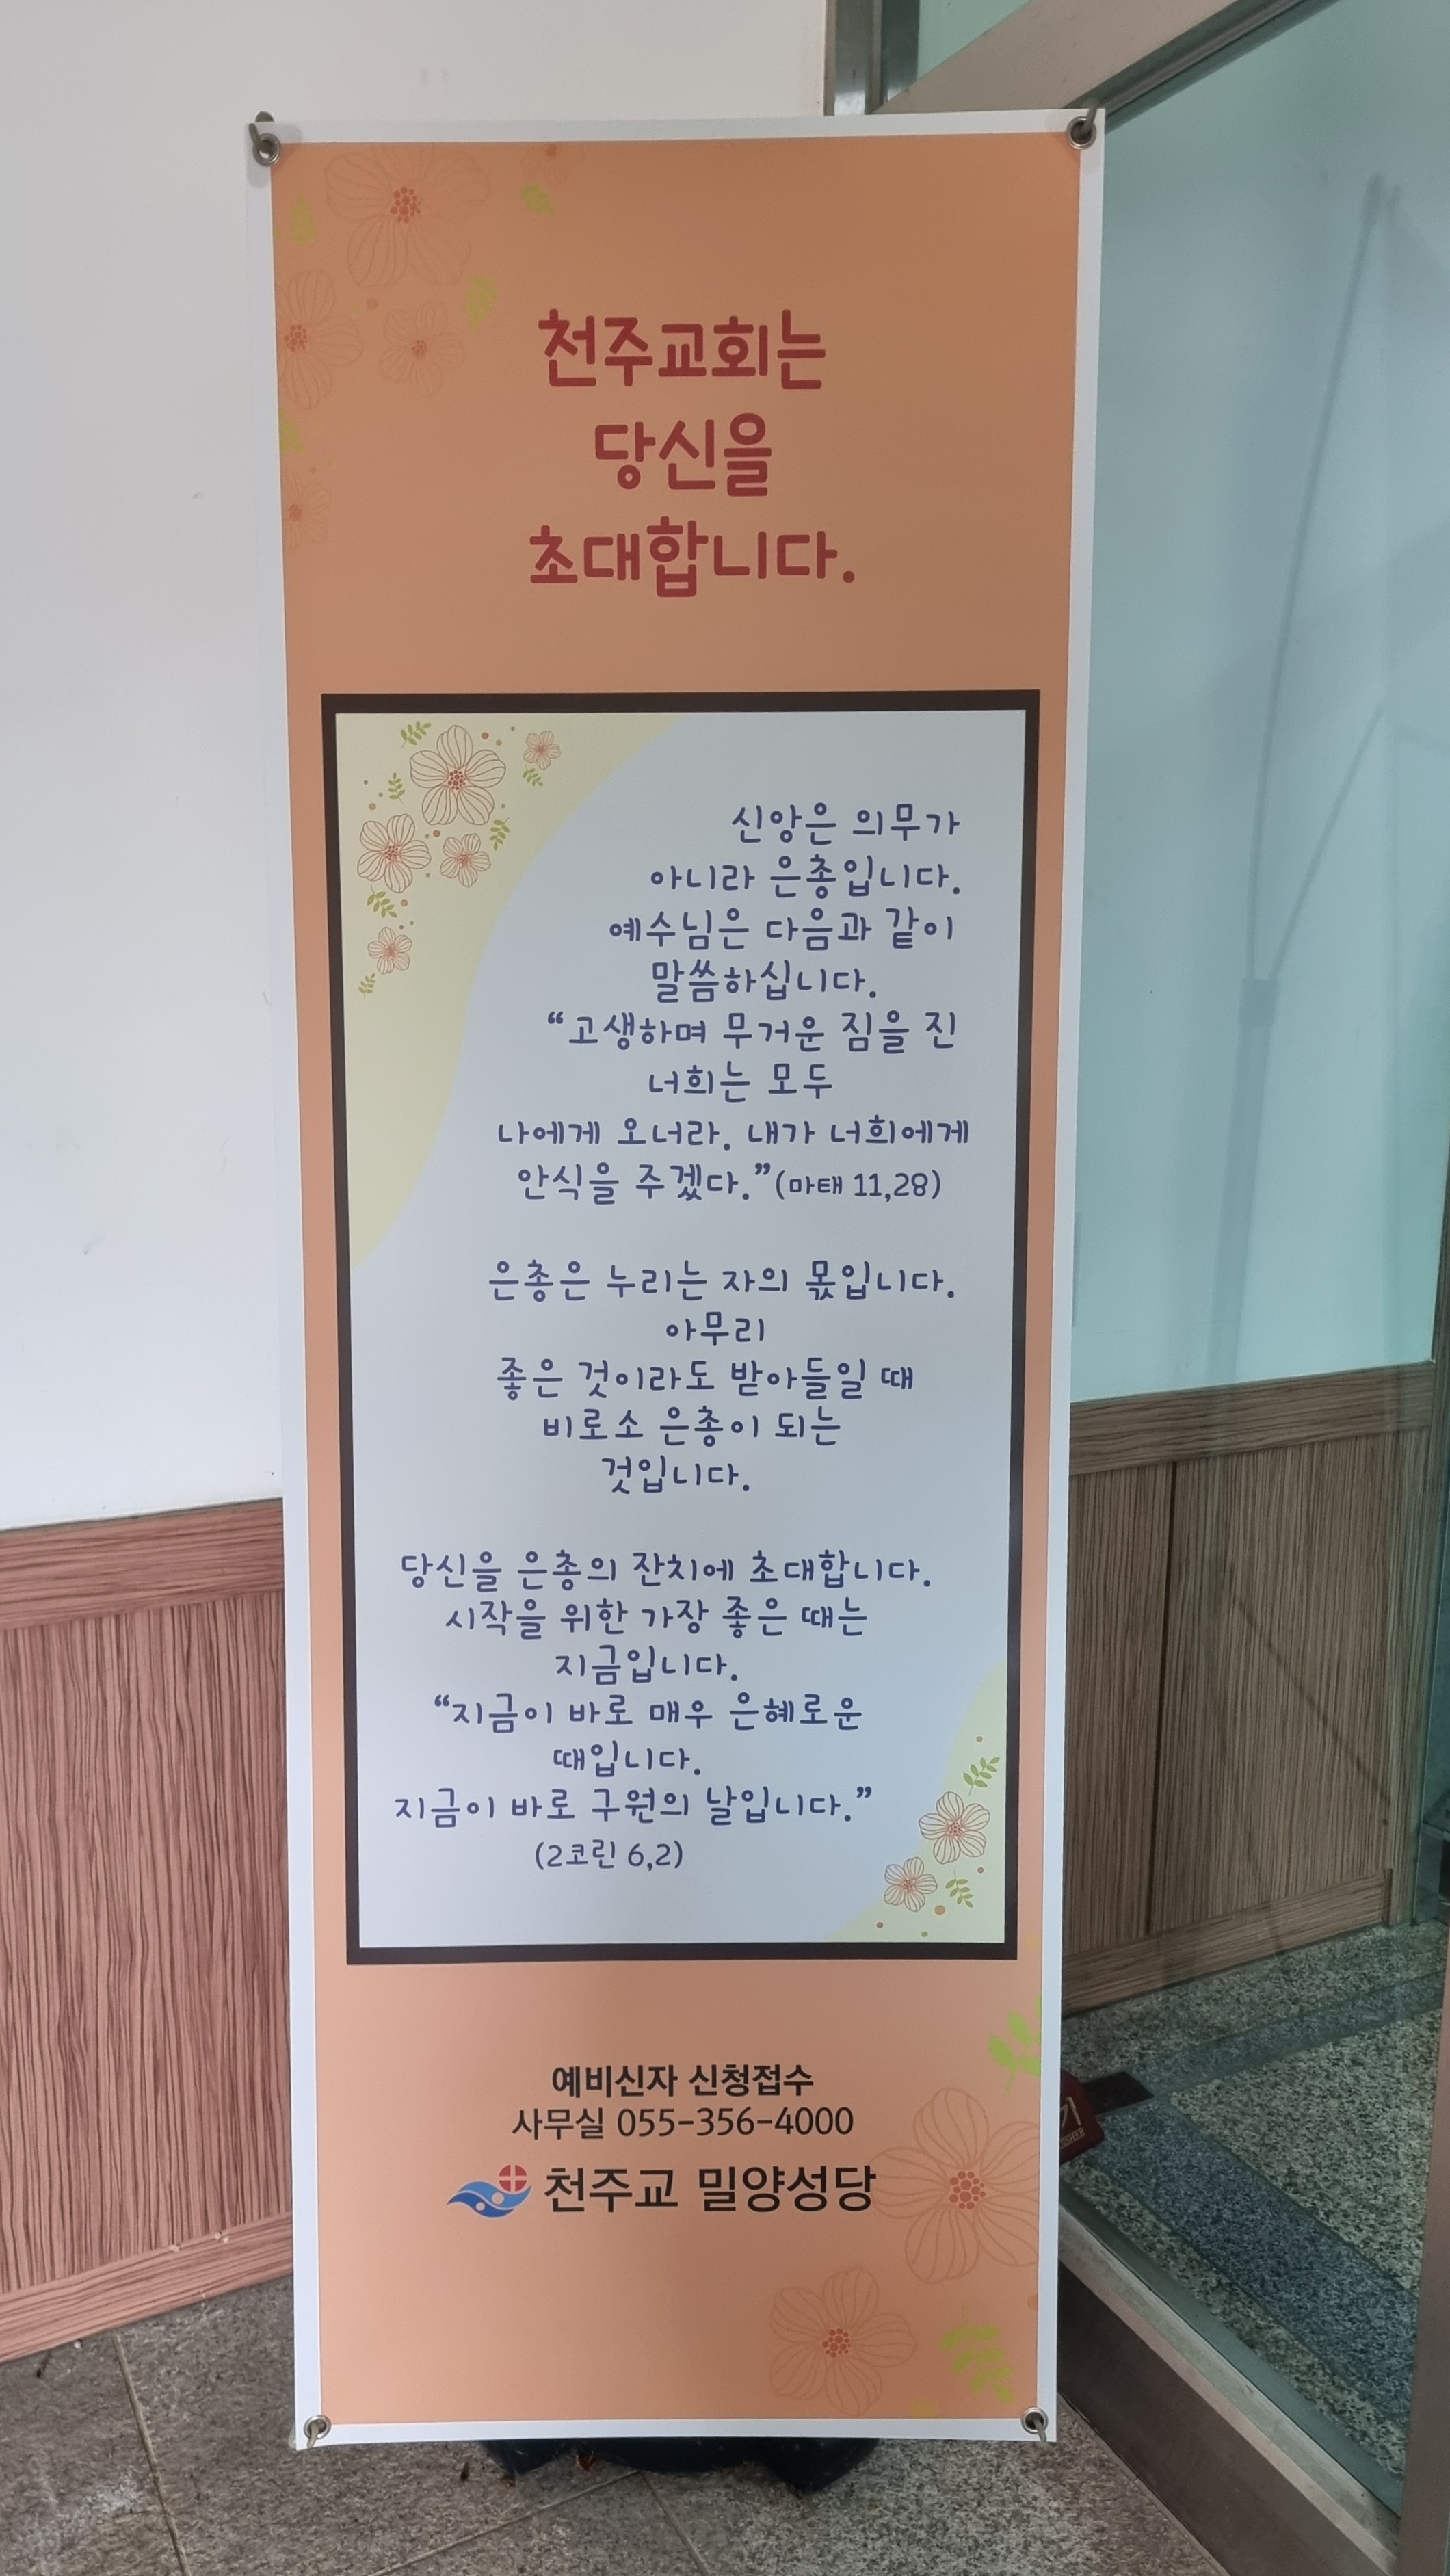 천주교회는
당신을
초대합니다.
신앙은 의무가
아니라 은총입니다.
예수님은 다음과 같이
말씀하십니다.
“고생하며 무거운 짐을 진
너희는 모두
나에게 오너라. 내가 너희에게
안식을 주겠다.”(마태 11,28)
은총은 누리는 자의 몫입니다.
아무리
좋은 것이라도 받아들일 때
비로소 은총이 되는
것입니다.
당신을 은총의 잔치에 초대합니다.
시작을 위한 가장 좋은 때는
지금입니다.
“지금이 바로 매우 은혜로운
때입니다.
지금이 바로 구원의 날입니다.”
(2코린 6,2)
예비신자 신청접수
사무실 055-356-4000
천주교 밀양성당